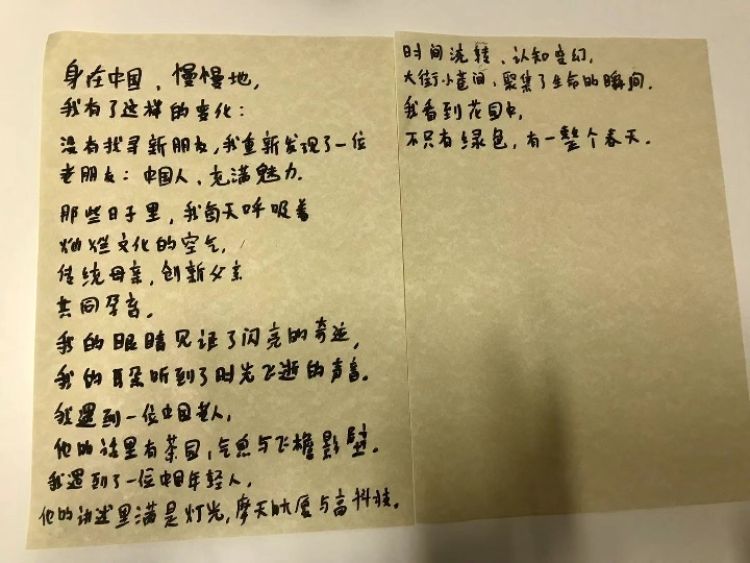 身在中国，慢慢地，
我有了这样的变化：
没有找寻新朋友，我重新发现了一位
老朋友：中国人，充满魅力.
那些日子里，我每天呼吸着
灿烂文化的空气，
传统母亲，创新父亲
共同孕育。
我的眼睛见证了闪亮的奇迹，
我的耳朵听到了时光飞逝的声音。
我遇到一位中国老人，
他的话里有茶园，气息与飞檐影壁.
我遇到了一位中国年轻人，
他的讲述里满是灯光，摩天大厦与高科技.
时间流转，认知变幻，
大街小巷间，聚集了生命的瞬间.
我看到花园中，
不只有绿色，有一整个春天.